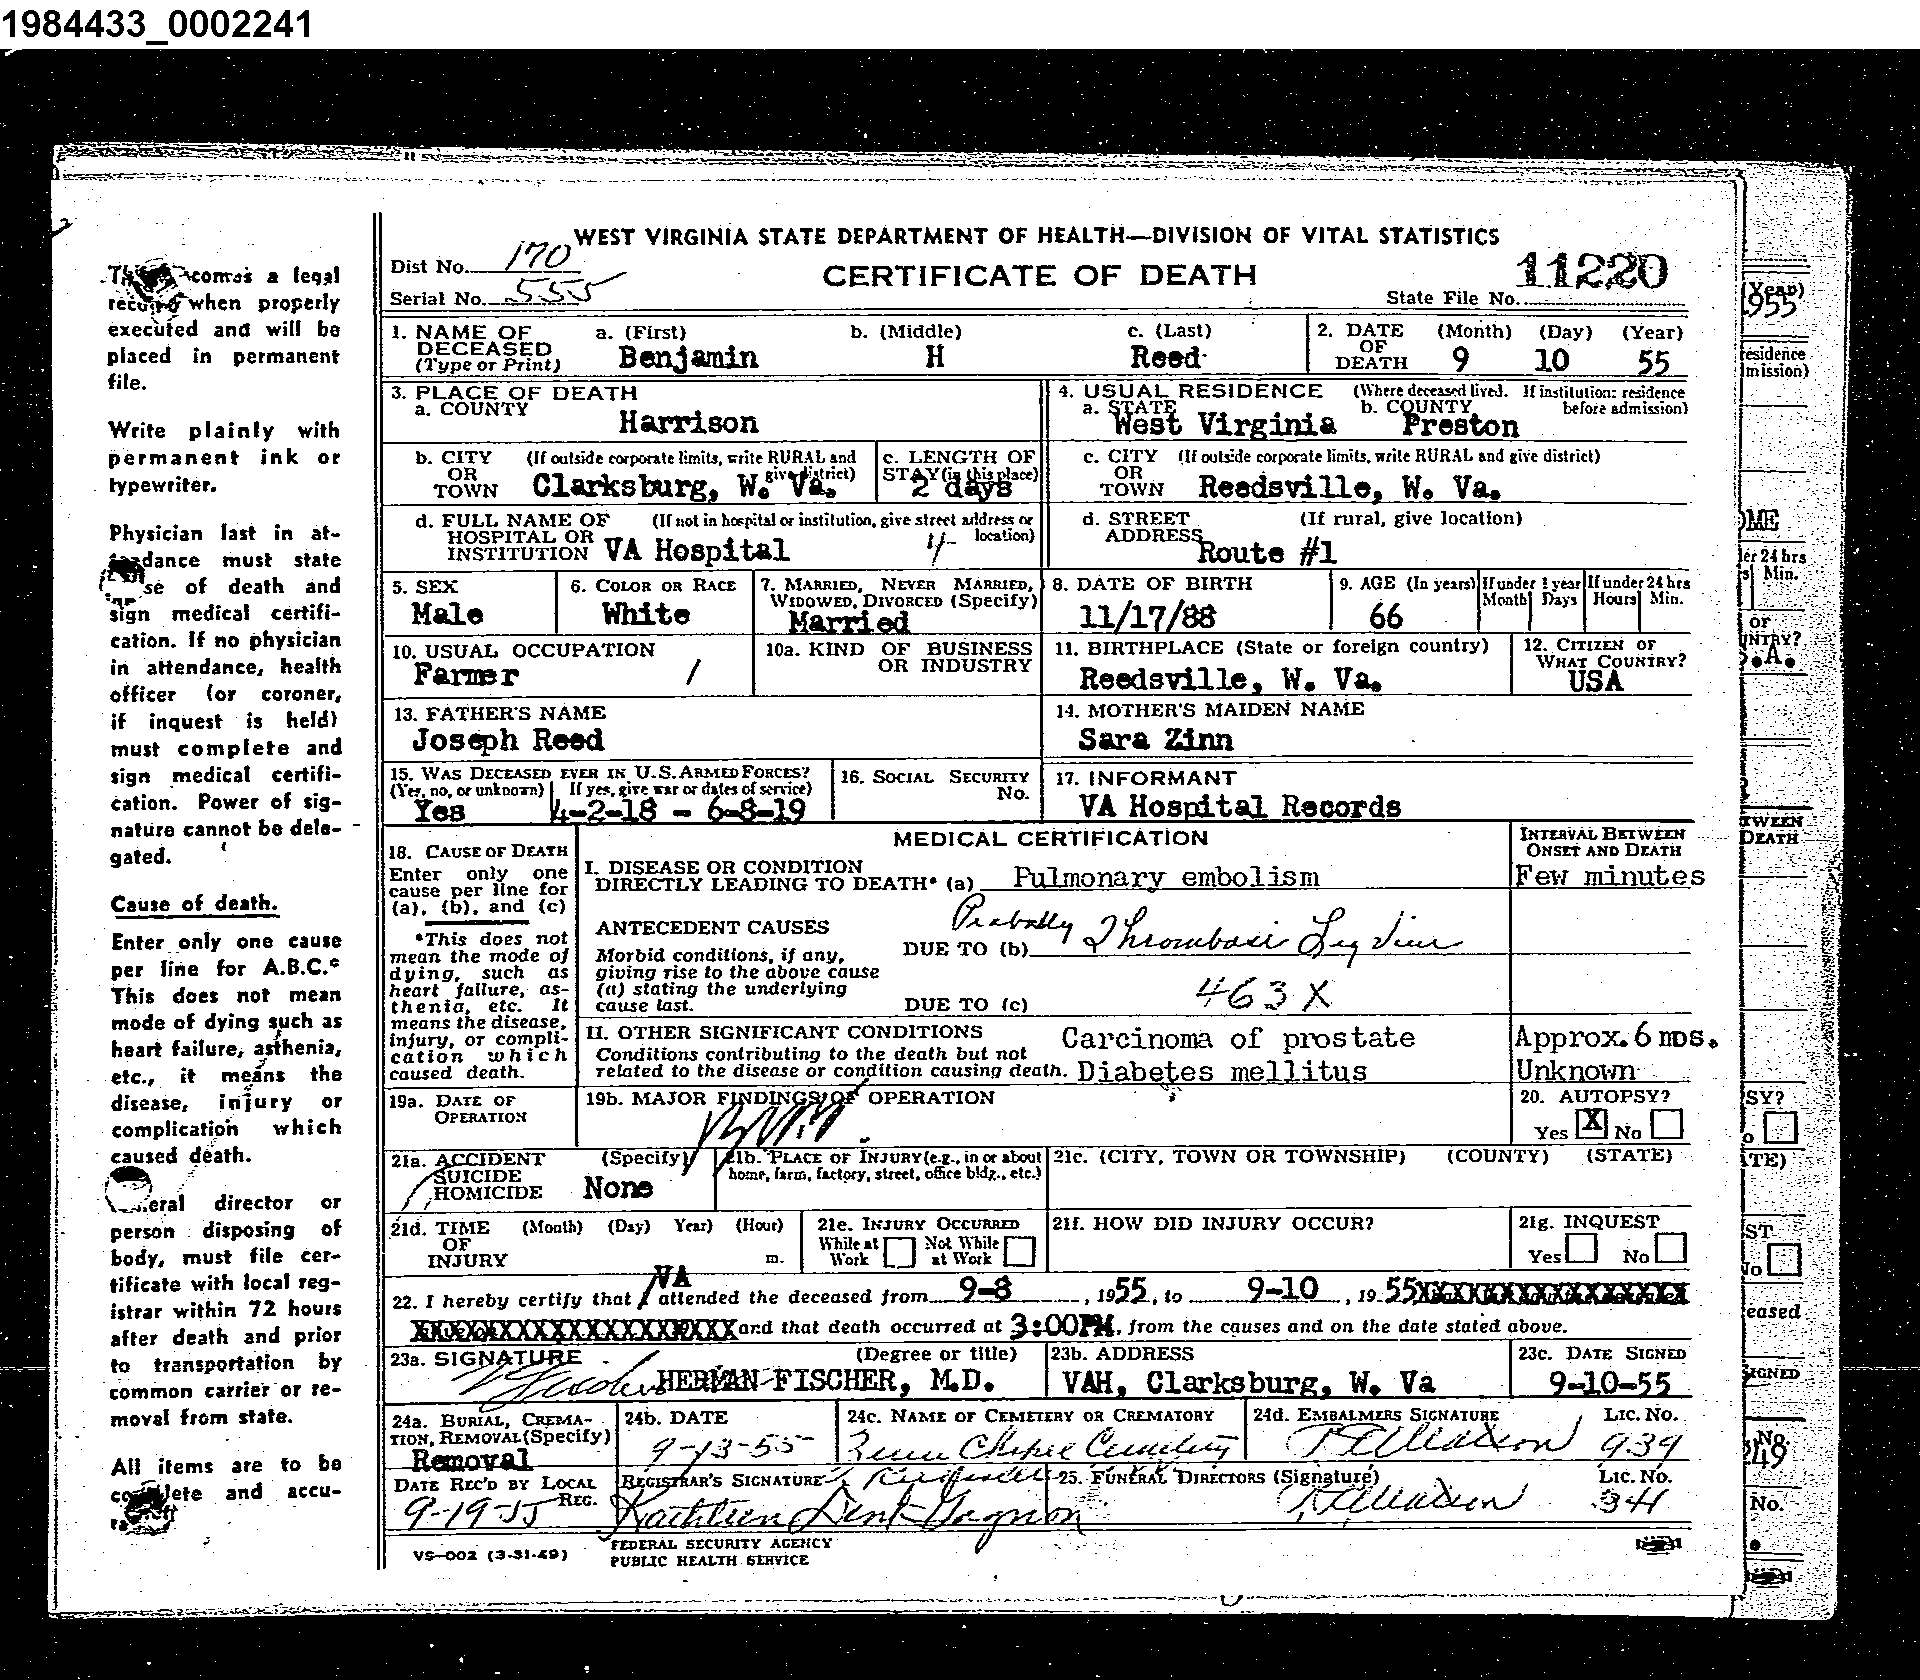 1984433_0002241
WEST VIRGINIA STATE DEPARTMENT OF HEALTH—DIVISION OF VITAL STATISTICS
Dist No. 170
CERTIFICATE OF DEATH
11220
Serial No. 555
State File No.
1. NAME OF DECEASED (Type or Print)
a. (First) Benjamin
b. (Middle) H
c. (Last) Reed
2. DATE OF DEATH (Month) 9 (Day) 10 (Year) 55
3. PLACE OF DEATH
a. COUNTY Harrison
4. USUAL RESIDENCE (Where deceased lived. If institution: residence before admission)
a. STATE West Virginia
b. COUNTY Preston
b. CITY OR TOWN (If outside corporate limits, write RURAL and give district) Clarksburg, W. Va.
c. LENGTH OF STAY (in this place) 2 days
c. CITY OR TOWN (If outside corporate limits, write RURAL and give district) Reedsville, W. Va.
d. FULL NAME OF HOSPITAL OR INSTITUTION (If not in hospital or institution, give street address or location) VA Hospital
d. STREET ADDRESS (If rural, give location) Route #1
5. SEX Male
6. COLOR OR RACE White
7. MARRIED, NEVER MARRIED, WIDOWED, DIVORCED (Specify) Married
8. DATE OF BIRTH 11/17/88
9. AGE (In years) 66
If under 1 year Month Days
If under 24 hrs Hours Min.
10. USUAL OCCUPATION Farmer /
10a. KIND OF BUSINESS OR INDUSTRY
11. BIRTHPLACE (State or foreign country) Reedsville, W. Va.
12. CITIZEN OF WHAT COUNTRY? USA
13. FATHER'S NAME Joseph Reed
14. MOTHER'S MAIDEN NAME Sara Zinn
15. WAS DECEASED EVER IN U.S. ARMED FORCES?
(Yes, no, or unknown) Yes
If yes, give war or dates of service) 4-2-18 - 6-8-19
16. SOCIAL SECURITY No.
17. INFORMANT VA Hospital Records
MEDICAL CERTIFICATION
INTERVAL BETWEEN ONSET AND DEATH
18. CAUSE OF DEATH
Enter only one cause per line for (a), (b), and (c)
*This does not mean the mode of dying, such as heart failure, asthenia, etc. It means the disease, injury, or complication which caused death.
I. DISEASE OR CONDITION DIRECTLY LEADING TO DEATH* (a) Pulmonary embolism
Few minutes
ANTECEDENT CAUSES
Morbid conditions, if any, giving rise to the above cause (a) stating the underlying cause last.
DUE TO (b) Probably Thrombosis Leg Vein
DUE TO (c) 463X
II. OTHER SIGNIFICANT CONDITIONS
Conditions contributing to the death but not related to the disease or condition causing death.
Carcinoma of prostate Approx. 6 mos.
Diabetes mellitus Unknown
19a. DATE OF OPERATION
19b. MAJOR FINDINGS OF OPERATION
20. AUTOPSY? Yes X No
21a. ACCIDENT SUICIDE HOMICIDE (Specify) None
21b. PLACE OF INJURY (e.g., in or about home, farm, factory, street, office bldg., etc.)
21c. (CITY, TOWN OR TOWNSHIP) (COUNTY) (STATE)
21d. TIME OF INJURY (Month) (Day) Year) (Hour) m.
21e. INJURY OCCURRED While at Work Not While at Work
21f. HOW DID INJURY OCCUR?
21g. INQUEST Yes No
22. I hereby certify that VA attended the deceased from 9-8, 1955, to 9-10, 1955
and that death occurred at 3:00PM, from the causes and on the date stated above.
23a. SIGNATURE (Degree or title) HERMAN FISCHER, M.D.
23b. ADDRESS VAH, Clarksburg, W. Va
23c. DATE SIGNED 9-10-55
24a. BURIAL, CREMATION, REMOVAL (Specify) Removal
24b. DATE 9-13-55
24c. NAME OF CEMETERY OR CREMATORY Chapel Cemetery
24d. EMBALMERS SIGNATURE Lic. No. 939
DATE REC'D BY LOCAL REG. 9-19-55
REGISTRAR'S SIGNATURE Kathleen Dent
25. FUNERAL DIRECTORS (Signature) Lic. No. 341
VS—002 (3-31-49)
FEDERAL SECURITY AGENCY
PUBLIC HEALTH SERVICE
comes a legal
record when properly
executed and will be
placed in permanent
file.
Write plainly with
permanent ink or
typewriter.
Physician last in at-
tendance must state
of death and
sign medical certifi-
cation. If no physician
in attendance, health
officer (or coroner,
if inquest is held)
must complete and
sign medical certifi-
cation. Power of sig-
nature cannot be dele-
gated.
Cause of death.
Enter only one cause
per line for A.B.C.*
This does not mean
mode of dying such as
heart failure, asthenia,
etc., it means the
disease, injury or
complication which
caused death.
director or
person disposing of
body, must file cer-
tificate with local reg-
istrar within 72 hours
after death and prior
to transportation by
common carrier or re-
moval from state.
All items are to be
complete and accu-